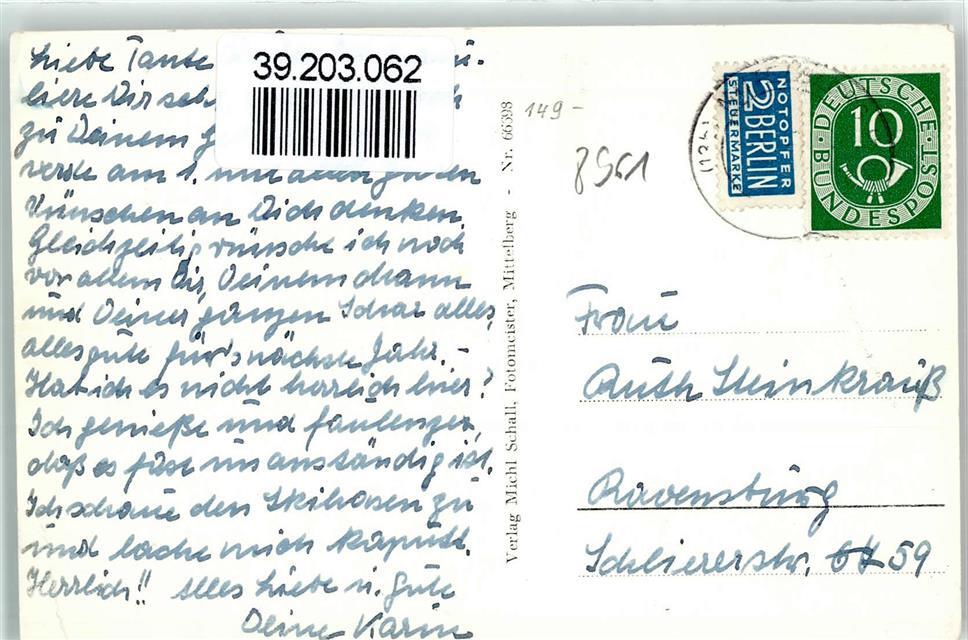 Liebe Tante
liere Dir
zu Deinem
werde am 1. mit allen guten
Wünschen an Dich denken
Gleichzeitig wünsche ich noch
vor allem Dir, Deinem Mann
und Deiner ganzen Schar alles,
alles gute für's nächste Jahr. –
Hat ich es nicht herrlich hier?
Ich genieße und faulenze,
daß es fast unanständig ist.
Ich schaue den Skihasen zu
und lache mich kaputt.
Herrlich!! Alles Liebe u. Gute
Deine Karin
39.203.062
Verlag Michl Schall, Fotomeister, Mittelberg - Nr. 66598
149-
8961
NOTOPFER
2 BERLIN
STEUERMARKE
DEUTSCHE
10
BUNDESPOST
Frau
Ruth Steinkrauß
Ravensburg
Schliererstr. 59